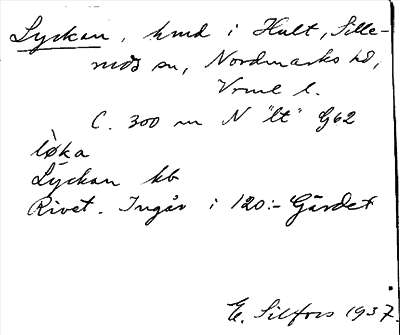 Lyckan, hmd i Hult, Sille-
ruds sn, Nordmarks hd,
Vrml l.
C. 300 m N "lt" G62
lø̀ka
Lyckan kb
Rivet. Ingår i 120:- Gärdet
E. Silfors 1937.